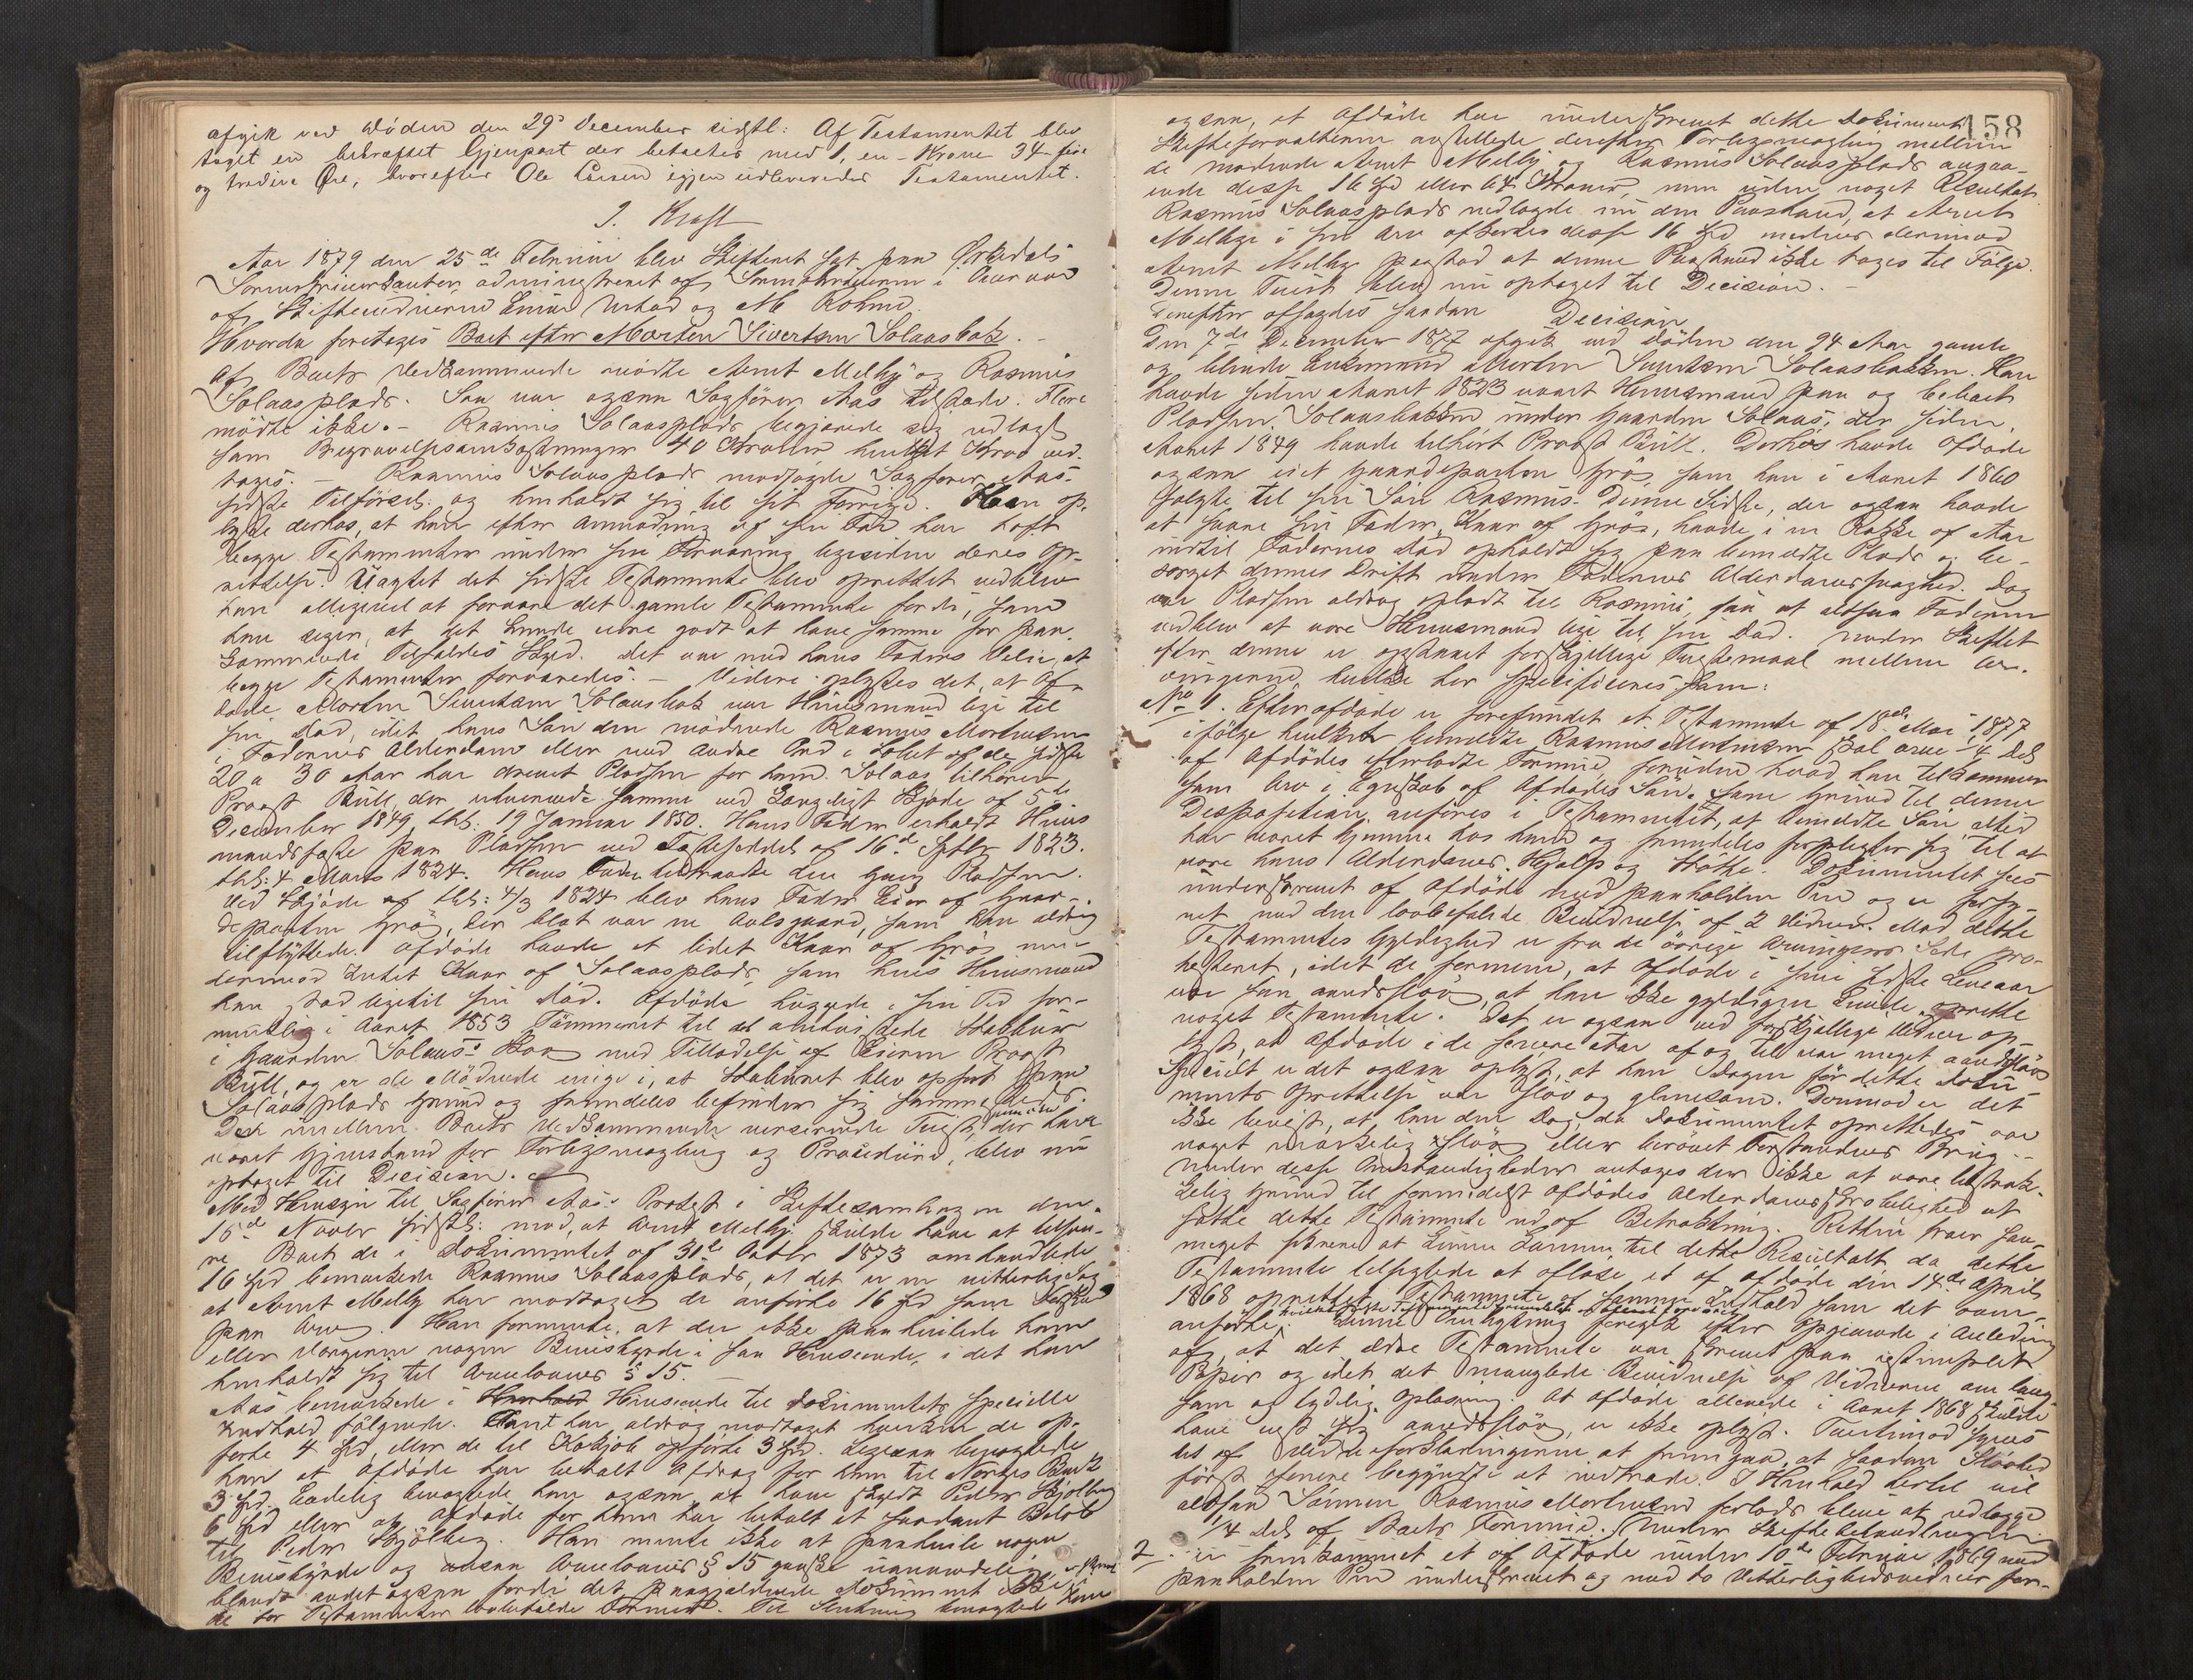 afgik ved Døden den 29de December sidstl: Af Testamentet blev
taget en bekræftet Gjenpart der betaltes med 1, en – Krone 34 – fire
og tredive Øre, hvorefter Ole Larsen igjen udleveredes Testamentet.
J. Kraft
Aar 1879 den 25de Februar blev Skifteret sat paa Ørkedals
Sorenskriverkontor, administreret af Sorenskriveren i Overvær
af Skiftevidnerne Einar Uthod og M Rohme.
Hvorda foretoges Boet efter Morten Sivertsen Solaasbak. –
Af Boets Vedkommende mødte Arnt Melby og Rasmus
Solaasplads. Saa var ogsaa Sagfører Aas tilstæde. Flere
mødte ikke. – Rasmus Solaasplads begjærede sig udlagt
som Begravelsesomkostninger 40 Kroner hvilket Krav ved-
toges. – Rasmus Solaasplads modsagde Sagfører Aas's
sidste Tilførsel og henholdt sig til sit Forrige. Han op-
lyste derhos, at han efter Anmodning af sin Fader har havt
begge Testamenter under sin Forvaring ligesiden deres Op-
rettelse. Uagtet det sidste Testamente blev oprettet vedblev
han alligevel at forvare det gamle Testamente fordi, som
han siger, at det kunde være godt at have samme for paa-
kommende Tilfældes Skyld. Det var med hans Faders Vilje, at
begge Testamenter forvaredes. – Videre oplystes det, at Af-
døde Morten Sivertsen Solaasbak var Husmand lige til
sin Død, idet hans Søn den mødende Rasmus Mortensen
i Faderens Alderdom eller med andre Ord i Løbet af de sidste
20 a 30 Aar har drevet Pladsen for ham. Solaas tilhører
Provst Bull, der erhvervede samme ved Kongeligt Skjøde af 5te
December 1849, thl: 19 Januar 1850. Hans Fader erholdt Huus
mandsfæste paa Pladsen ved Fæsteseddel af 16de Septbr 1823.
thl: 4 Marts 1824. Hans Fader tiltraadte den Gang Pladsen.
Ved Skjøde af thl: 4/3 1824 blev hans Fader Eier af Gaar-
departen Grøs, der blot var en Avlsgaard, som han aldrig
tilflyttede. Afdøde havde et lidet Kaar af Grøs men
derimod intet Kaar af Solaasplads, som hvis Huusmand
han stod ligetil sin Død. Afdøde huggede i sin Tid for-
mentlig i Aaret 1853 Tømmeret til det omtvistede Stabbur
i Gaarden Solaas's Skov med Tilladelse af Eieren Provst
Bull, og er de Mødende enige i, at Stabburet blev opført paa
Solaasplads Grund og fremdeles befinder sig sammesteds.
Den mellem Boets Vedkommende verserende Tvist, der have
været Gjenstand for Forligsmægling og Procedure, blev nu
optaget til Decision. –
Med Hensyn til Sagfører Aas's Protest i Skiftesamlingen den
15de Novbr sidstl: mod, at Arnt Melby skulde have at tilsva-
re Boet de i Dokumentet af 31te Octbr 1873 omhandlede
16 Spd bemærkede Rasmus Solaasplads, at det er en vitterlig Sag
at Arnt Melby har modtaget de anførte 16 Spd som Forskud
paa Arv. Han formente, at der ikke paahvilede ham
eller Arvingerne nogen Bevisbyrde i saa Henseende, i det han
henholdt sig til Arvelovens § 15. –
Aas bemærkede i Henseende til Dokumentets specielle
Indhold følgende. Arnt har aldrig modtaget hverken de op-
førte 4 Spd, eller de til Kokjøb opførte 3 Spd. Ligesaa benægtede
han at Afdøde har betalt Afdrag for ham til Norges Bank
3 Spd. Endelig benægtede han ogsaa at have skyldt Peder Skjølberg
6 Spd eller at Afdøde for ham har betalt et saadant Beløb
til Peder Skjølberg. Han mente ikke at paahvile nogen
Bevisbyrde og ansaa Arvelovens § 15 ganske uanvendelig,
blandt andet ogsaa fordi det paagjældende Dokument ikke
de for Testamenter lovbefalede Former. Til Slutning benægtede han
158
ogsaa, at Afdøde har underskrevet dette Dokument.
Skifteforvalteren anstillede derefter Forligsmægling mellem
de mødende Arnt Melby og Rasmus Solaasplads angaa-
ende disse 16 Spd eller 64 Kroner, men uden noget Resultat.
Rasmus Solaasplads nedlagde nu den Paastand, at Arnt
Melbye i sin Arv afkortes disse 16 Spd medens derimod
Arnt Melby paastod at denne Paastand ikke toges til Følge.
Denne Tvist blev nu optaget til Decision. –
Derefter afsagdes saadan Decision
Den 7de December 1877 afgik ved Døden den 94 Aar gamle
og blinde Enkemand Morten Sivertsen Solaasbakken. Han
havde siden Aaret 1823 været Huusmand paa og beboet
Pladsen Solaasbakken under Gaarden Solaas, der siden
Aaret 1849 havde tilhørt Provst Bull. Derhos havde Afdøde
ogsaa eiet Gaardeparten Grøs, som han i Aaret 1860
solgte til sin Søn Rasmus. Denne Sidste, der ogsaa havde
at svare sin Fader Kaar af Grøs, havde i en Række af Aar
indtil Faderens Død opholdt sig paa bemeldte Plads og be-
sørget dennes Drift under Faderens Alderdomssvaghed. Dog
var Pladsen aldrig opladt til Rasmus, saa at altsaa Faderen
vedblev at være Huusmand lige til sin Død. Under Skiftet
efter denne er opstaaet forskjellige Tvistemaal mellem Ar-
vingerne, hvilke her specificeres som:
No 1. Efter Afdøde er forefundet et Testamente af 18de Mai 1877
ifølge hvilket bemeldte Rasmus Mortensen skal arve 1/4 Del
af Afdødes efterladte Formue, foruden hvad han tilkommer
som Arv i Egenskab af Afdødes Søn. Som Grund til denne
Disposition anføres i Testamentet, at bemeldte Søn altid
har været hjemme hos ham og fremdeles forpligter sig til at
være hans Alderdoms Hjælp og Støtte. Dokumentet sees
underskrevet af Afdøde med paaholden Pen og er forsy-
net med den lovbefalede Bevidnelse af 2 Vidner. Mod dette
Testamentes Gyldighed er fra de øvrige Arvingers Side pro-
testeret, idet de formene, at Afdøde i sine sidste Leveaar
var saa aandssløv, at han ikke gyldigen kunde oprette
noget Testamente. Det er ogsaa ved forskjellige Vidner op-
lyst, at Afdøde i de senere Aar af og til var meget aandssløv
Specielt er det ogsaa oplyst, at han Dagen før dette Doku-
ments Oprettelse var sløv og glemsom. Derimod er det
ikke bevist, at han den Dag, da Dokumentet oprettedes var
noget mærkelig sløv eller berøvet Forstandens Brug. –
Under disse Omstændigheder antages der ikke at være tilstræk-
kelig Grund til formedelst Afdødes Alderdomsskrøbelighed at
sætte dette Testamente ud af Betragtning. Retten troer saa-
meget sikrere at kunne komme til dette Resultat, da dette
Testamente tilsigtede at afløse et af Afdøde den 14de April
1868 oprettet Testamente af samme Indhold som det oven-
anførte. Denne Omskrivning foregik efter Opgivende i Anledning
af, at det ældre Testamente var skrevet paa ustemplet
Papir og idet det manglede Bevidnelse af Vidnerne om lang-
som og tydelig Oplæsning. At Afdøde allerede i Aaret 1868 skulde
have vist sig aandssløv, er ikke oplyst. Tvertimod synes
det af Vidneforklaringerne at fremgaa, at saadan Sløvhed
først senere begyndte at indtræde. I Henhold hertil vil
altsaa Sønnen Rasmus Mortensen forlods blive at udlægge
1/4 Del af Boets Formue. Under Skiftebehandlingen
2. er fremkommet et af Afdøde under 10de Februar 1869 med
paaholden Pen underskrevet og med to Vitterlighedsvidner for-